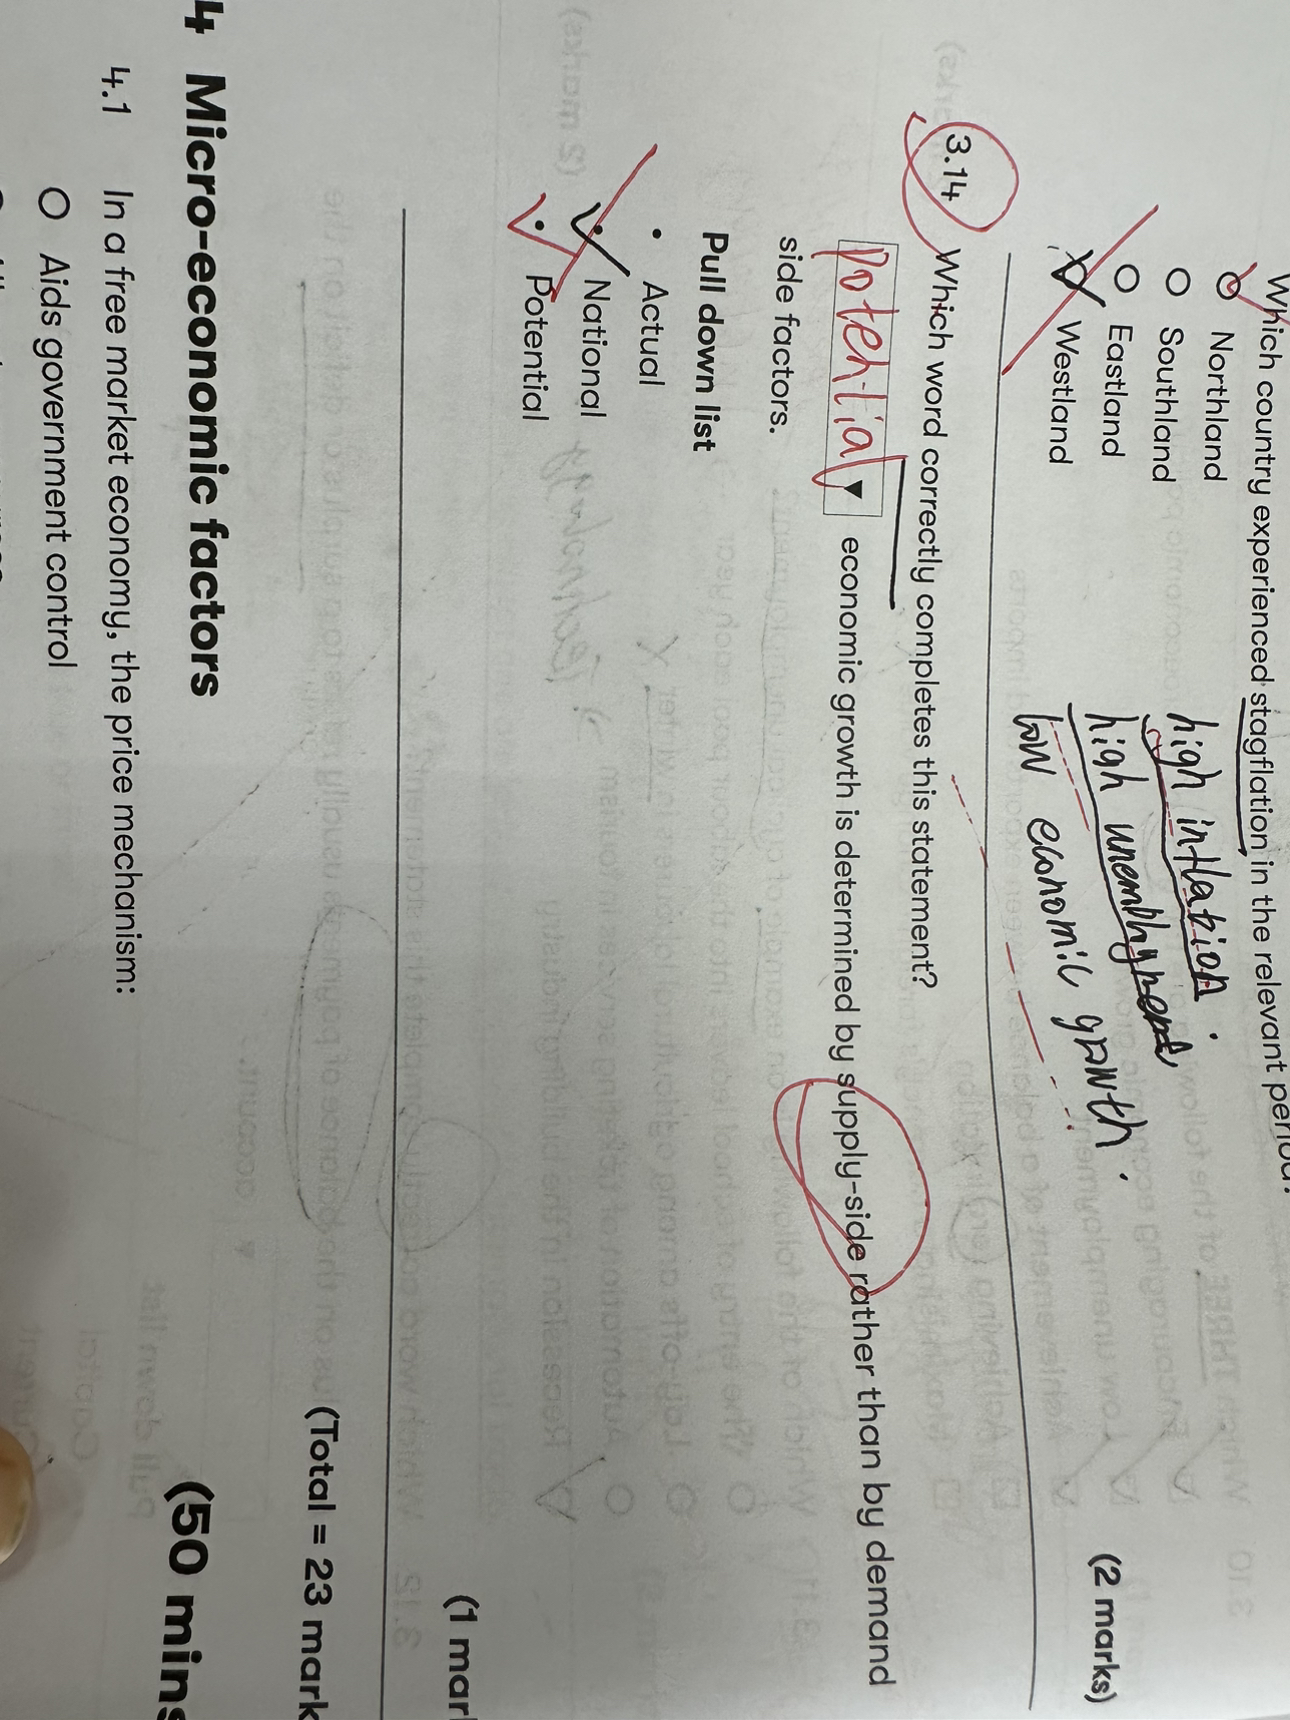 Which country experienced stagflation in the relevant period?
Northland
Southland
Eastland
Westland
high inflation.
high unemployment
low economic growth.
(2 marks)
3.14 Which word correctly completes this statement?
potential ▼ economic growth is determined by supply-side rather than by demand
side factors.
Pull down list
• Actual
• National
• Potential
(1 mar
(Total = 23 mark
4 Micro-economic factors (50 mins
4.1 In a free market economy, the price mechanism:
Aids government control